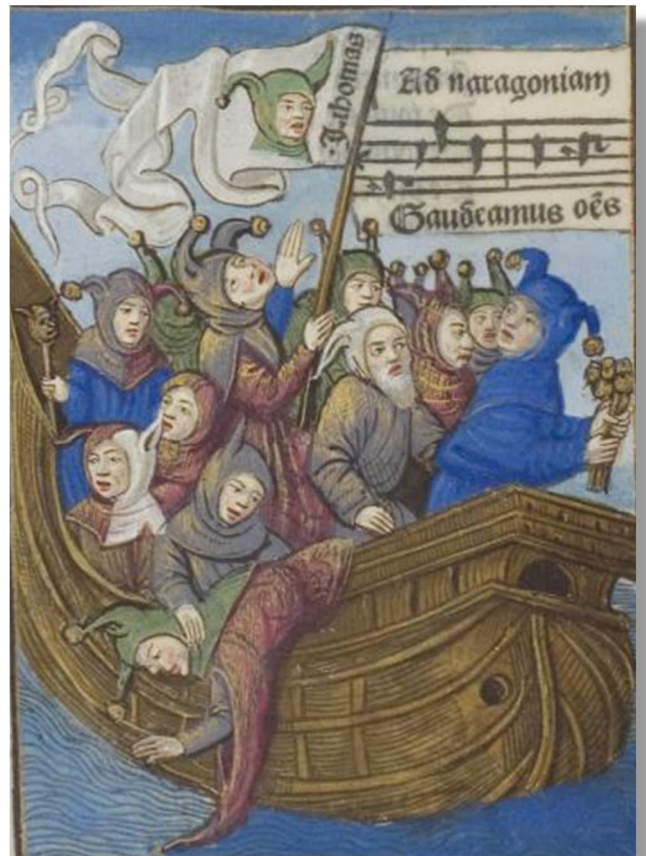 .J.thomas
Ad naragoniam
Gaudeamus oēs